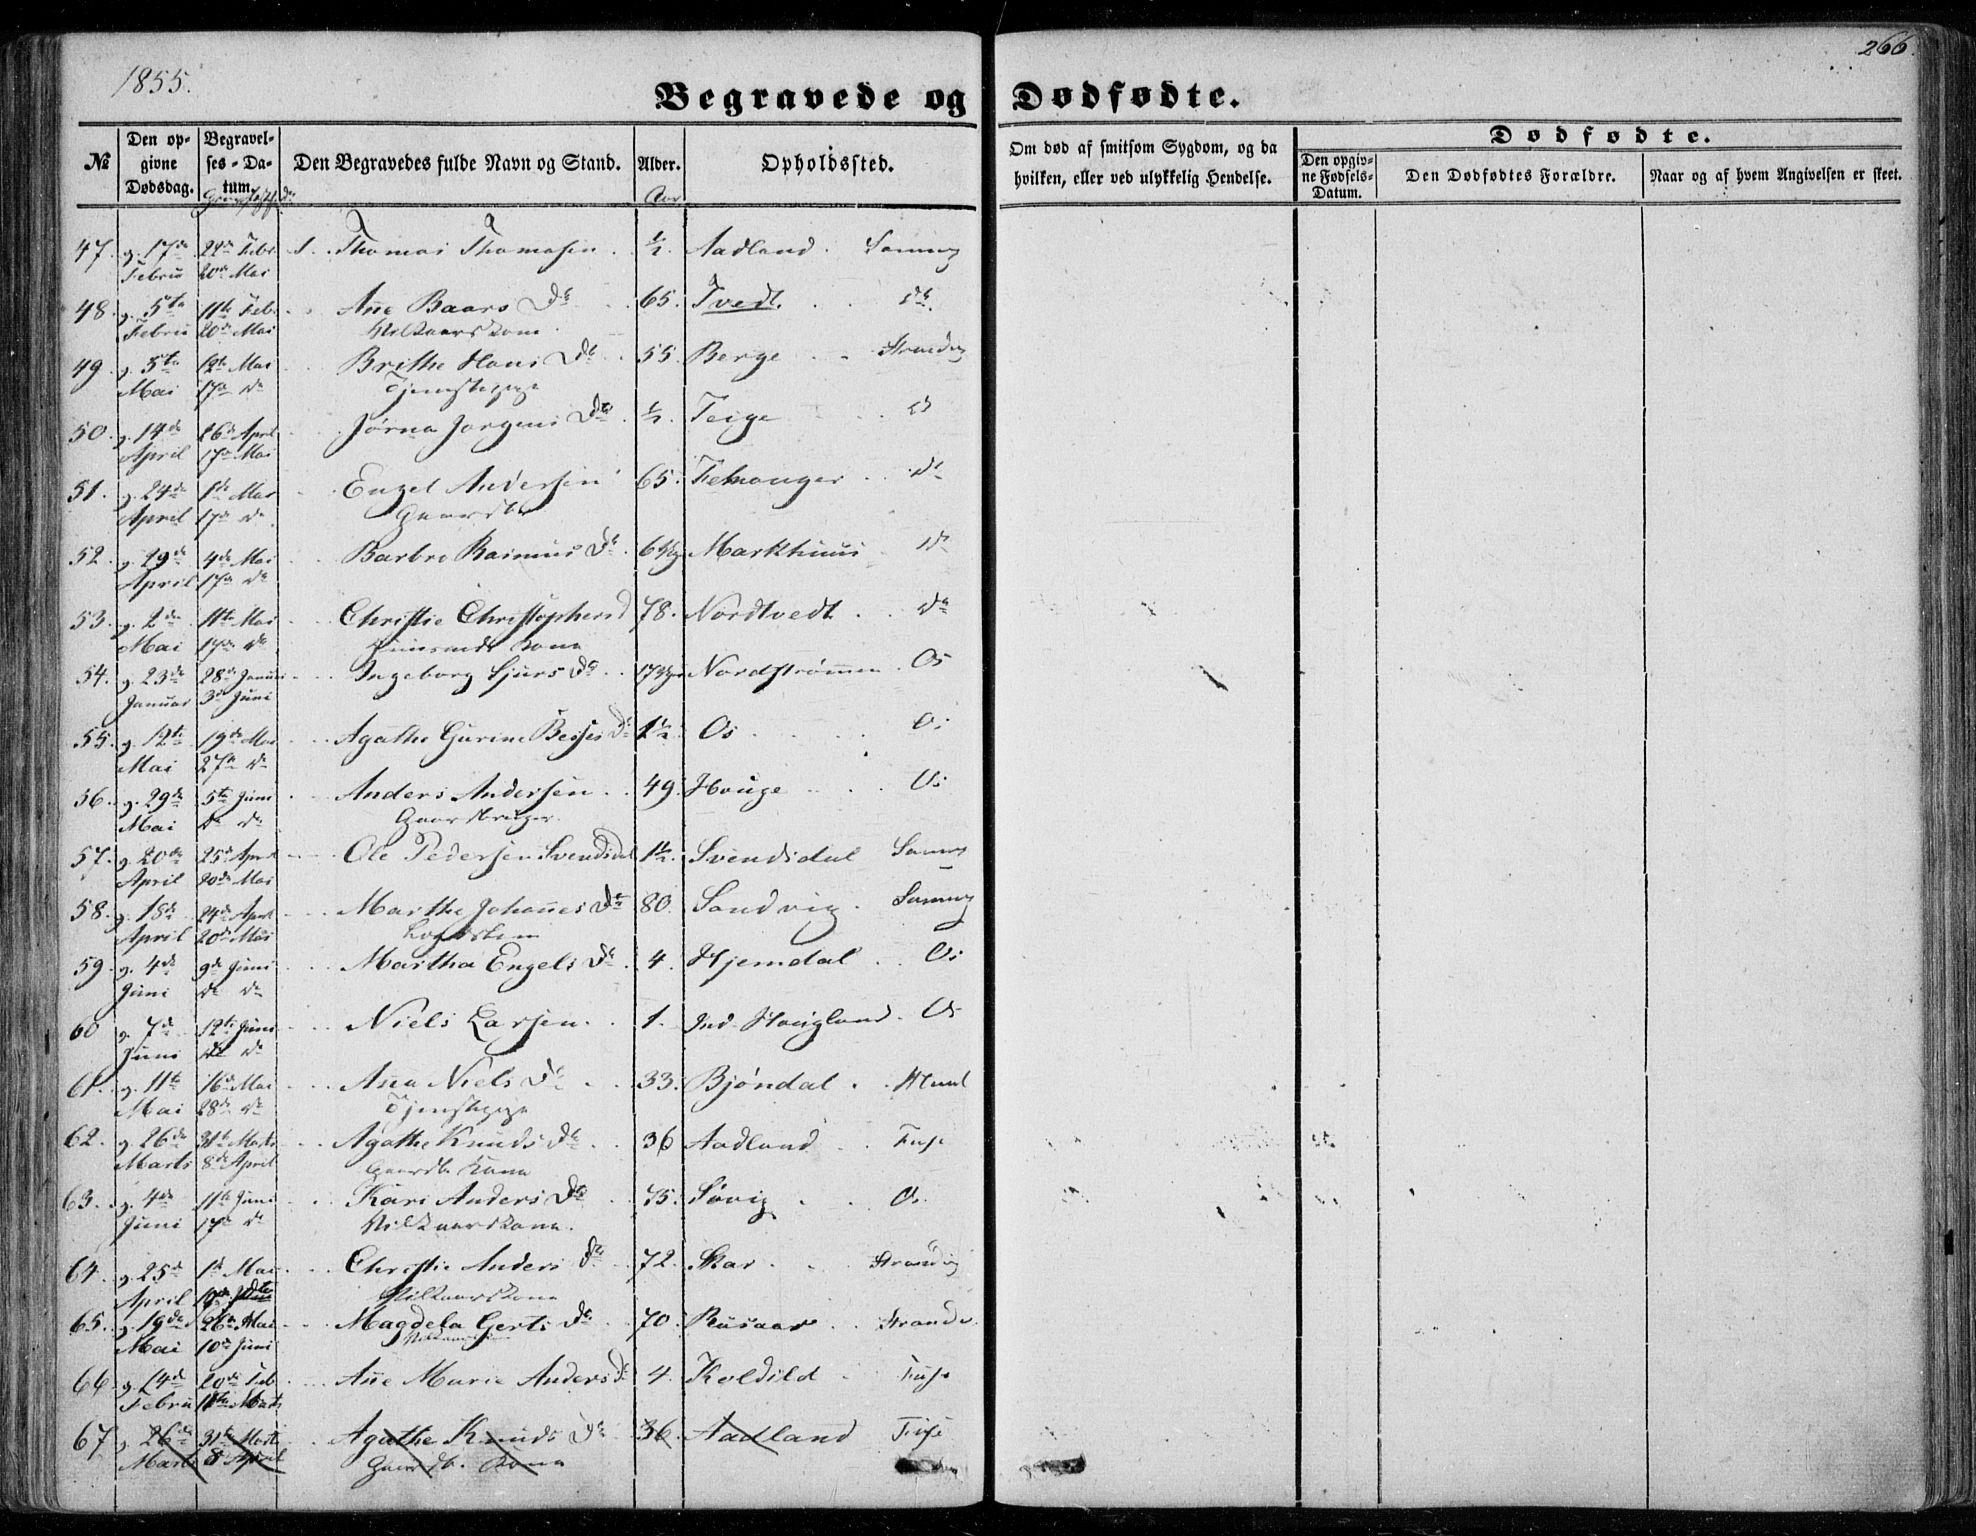 1855.
266.
Begravede og Dødfødte.
№
Den opgivne Dødsdag.
Begravelses-Datum.
Den Begravedes fulde Navn og Stand.
Alder.
Opholdssted.
Om død af smitsom Sygdom, og da hvilken, eller ved ulykkelig Hendelse.
Dødfødte.
Den opgivne Fødsels-Datum.
Den Dødfødtes Forældre.
Naar og af hvem Angivelsen er skeet.
Aar
47. g. 17de 24de Febr. Thomas Thomasen. ½. Aadland.
Febru 20de Mai
48. g. 5te 11te Feb. Añe Baars Dr 65. Tvedt. do.
Febru 20de Mai Vilkaarskone.
49. g. 5te 12te Mai Brithe Hans Dr 55. Berge Strandvig
Mai 17de do Tjenestepige
50. g. 14de 26de April Jørna Jørgens Dr ½. Teige do
April 17de Mai
51. g. 24de 1ste Mai Engel Andersen 65. Femanger do
April 17de do Gaardbr
52. g. 29de 4de Mai Barbro Rasmus Dr. Markhuus do
April 17de do
53. g. 2de 11te Mai Christie Christophersd 78. Nordtvedt. do
Mai 17de do Kone
54. g. 23de 28de Januar Ingeborg Sjurs Dr Nordstrømmen. Os
Januar 3de Juni
55. g. 12te 19de Mai Agathe Gurine Besses Dr 1½. Os Os
Mai 27de do
56. g. 29de 5te Juni Anders Andersen 49. Houge Os
Mai do do Gaardbruger
57. g. 20de 25de April Ole Pedersen Svendsdal 1½. Svendsdal
April 20de Mai
58. g. 18de 24de April Marthe Johañes Dr 80. Sandvig.
April 20de Mai
59. g. 4de 9de Juni Martha Engels Dr. 4. Hjemdal Os
Juni do do
60 g. 7de 12te Juni Niels Larsen. 1. Ind. Hougland. Os
Juni do do
61. g. 11te 16de Mai Aña Niels Dr 33. Bjøndal.
Mai 28de do Tjenestepige
62. g. 26de 31te Marts Agathe Knuds Dr 36 Aadland Fuse
Marts 8de April Gaardb. Kone
63. g. 4de 11te Juni Kari Anders Dr 75. Søvig Os.
Juni 17de do Vilkaarskone.
64. g. 25de 1ste Mai Christie Anders Dr 72. Skar. Strandvig
April Vilkaarskone
65. g. 19de 26de Mai Magdela Gerts Dr 70. Strandv.
Mai 10de Juni
66. g. 14de 20de Feb. Añe Marie Anders Dr 4. Koldild Fuse
Febru 11te Marts
67. g. 26de 31te Marts Agathe Knuds Dr 36. Aadland Fuse
Marts 8 April Gaardb. Kone